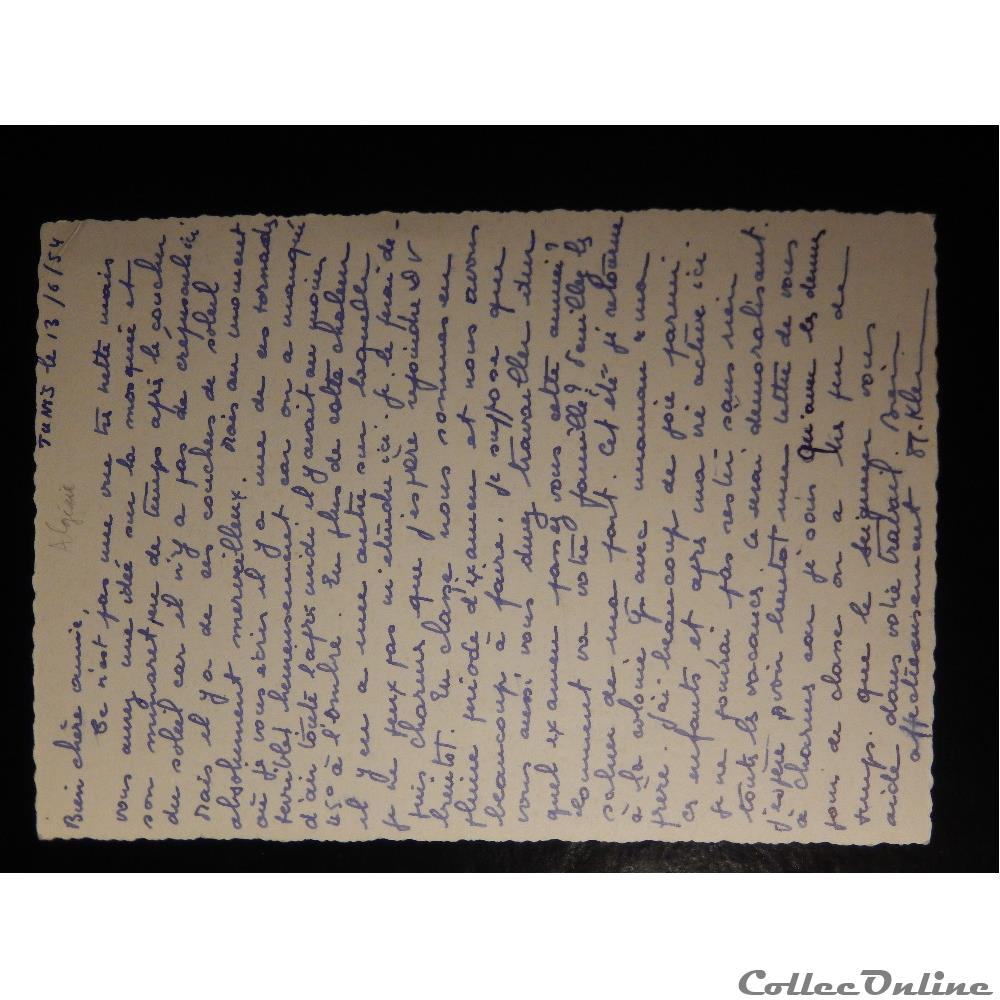 TUNIS le 13/6/54
Algérie
Bien chère amie,
Ce n'est pas une vue très nette mais
vous aurez une idée sur la mosquée et
son minaret peu de temps après le coucher
du soleil car il n'y a pas de crépuscule ici
Mais il y a de ces couchers de soleil
absolument merveilleux. Mais au moment
où je vous écris il y a une de ces tornades
terribles heureusement car on a manqué
d'air toute l'après midi il y avait au moins
45° à l'ombre. En plus de cette chaleur
il y en a une autre sur laquelle
je ne peux pas m'étendre ici. Je le ferai de-
puis Charmes que j'espère rejoindre DV
bientôt. En classe nous sommes en
pleine période d'examen et nous avons
beaucoup à faire. Je suppose que
vous aussi vous devez travailler dur
quel examen passez vous cette année?
Comment va votre famille? Veuillez les
saluer de ma part. Cet été je retourne
à la colonie avec maman et mon
frère. J'ai beaucoup de joie parmi
ces enfants et après ma vie active ici
je ne pourrai pas rester sans rien
toutes les vacances ce serai démoralisant.
J'espère avoir bientôt une lettre de vous
à Charmes car je sais qu'avec les devoirs
jours de classe on a très peu de
temps. Que le Seigneur vous
aide dans votre travail. Bien
affectueusement
CollecOnline